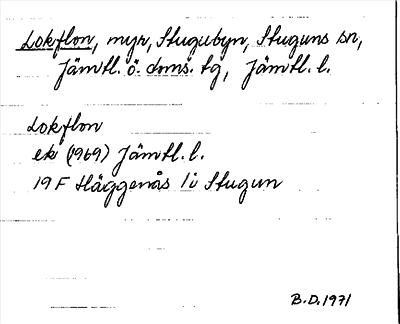 Lokflon, myr, Stugubyn, Stuguns sn,
Jämtl. ö. doms. tg, Jämtl. l.
Lokflon
ek (1969) Jämtl. l.
19 F Häggenås 1i Stugun
B.D. 1971